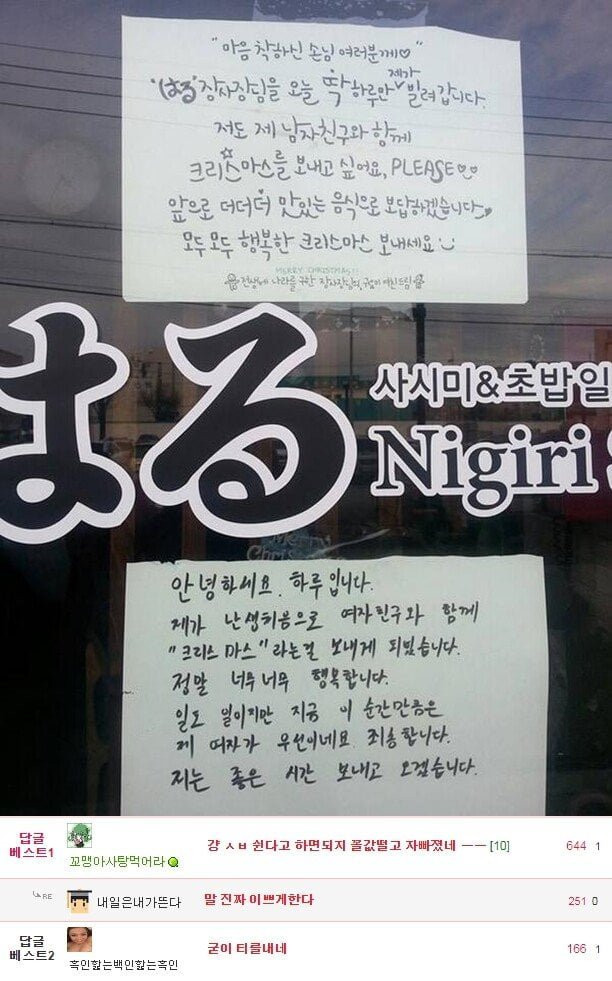 "마음 착하신 손님 여러분께♡"
'はる' 장사장님을 오늘 딱 하루만 제가 빌려갑니다.
저도 제 남자친구와 함께
크리스마스를 보내고 싶어요, PLEASE♡
앞으로 더더더 맛있는 음식으로 보답하겠습니다
모두모두 행복한 크리스마스 보내세요
MERRY CHRISTMAS!!
전생에 나라를 구한 장사장님의
はる
사시미&초밥 일
Nigiri
안녕하세요. 하루입니다.
제가 난생처음으로 여자친구와 함께
"크리스마스"라는걸 보내게 되었습니다.
정말 너무너무 행복합니다.
일도 일이지만 지금 이 순간만큼은
제 여자가 우선이네요. 죄송합니다.
저는 좋은 시간 보내고 오겠습니다.
답글 베스트1
꼬맹아사탕먹어라
걍 ㅅㅂ 쉰다고 하면되지 꼴값떨고 자빠졌네 ㅡㅡ [10]
644 1
RE
내일은내가뜬다
말 진짜 이쁘게한다
251 0
답글 베스트2
흑인핥는백인핥는흑인
굳이 티를내네
166 1